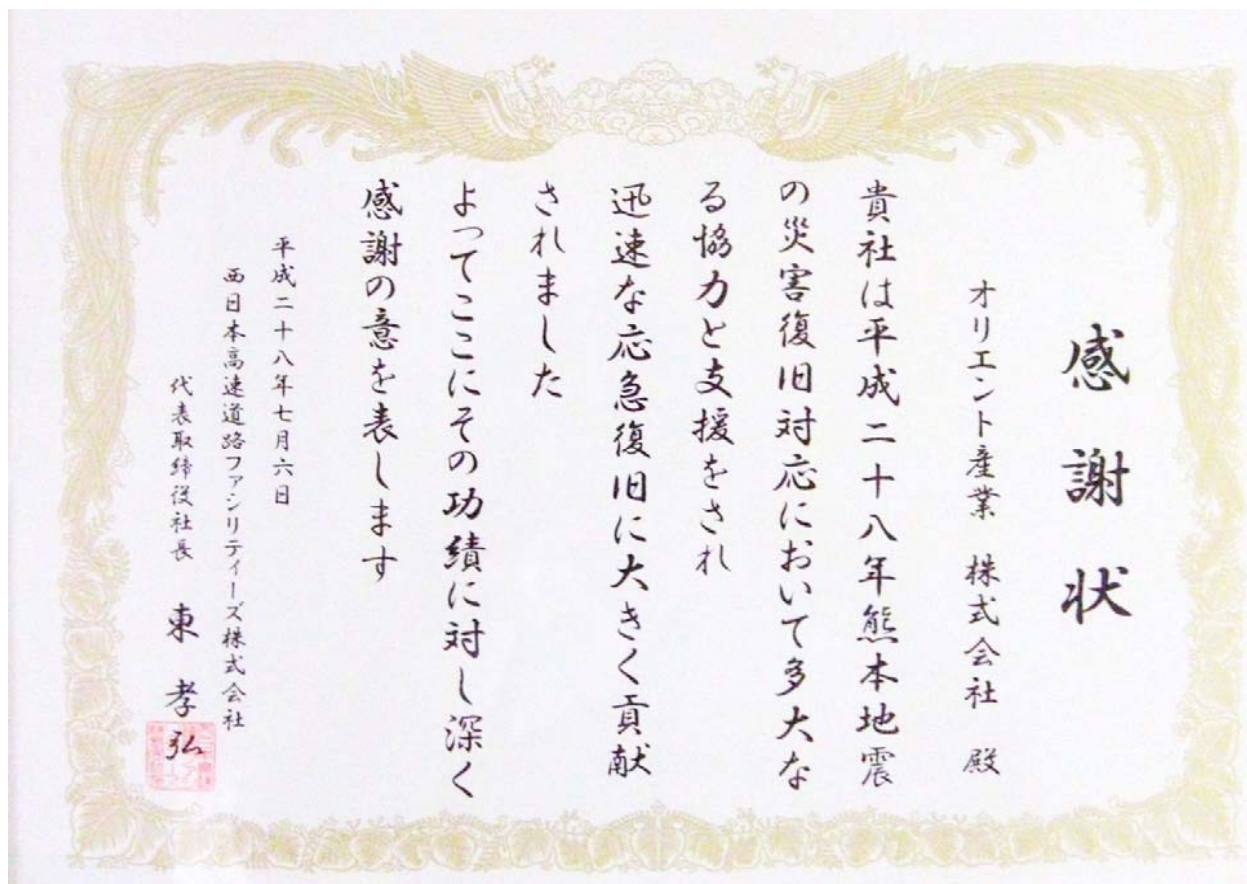 感謝状
オリエント産業 株式会社 殿
貴社は平成二十八年熊本地震
の災害復旧対応において多大な
る協力と支援をされ
迅速な応急復旧に大きく貢献
されました
よってここにその功績に対し深く
感謝の意を表します
平成二十八年七月六日
西日本高速道路ファシリティーズ株式会社
代表取締役社長 東 孝弘